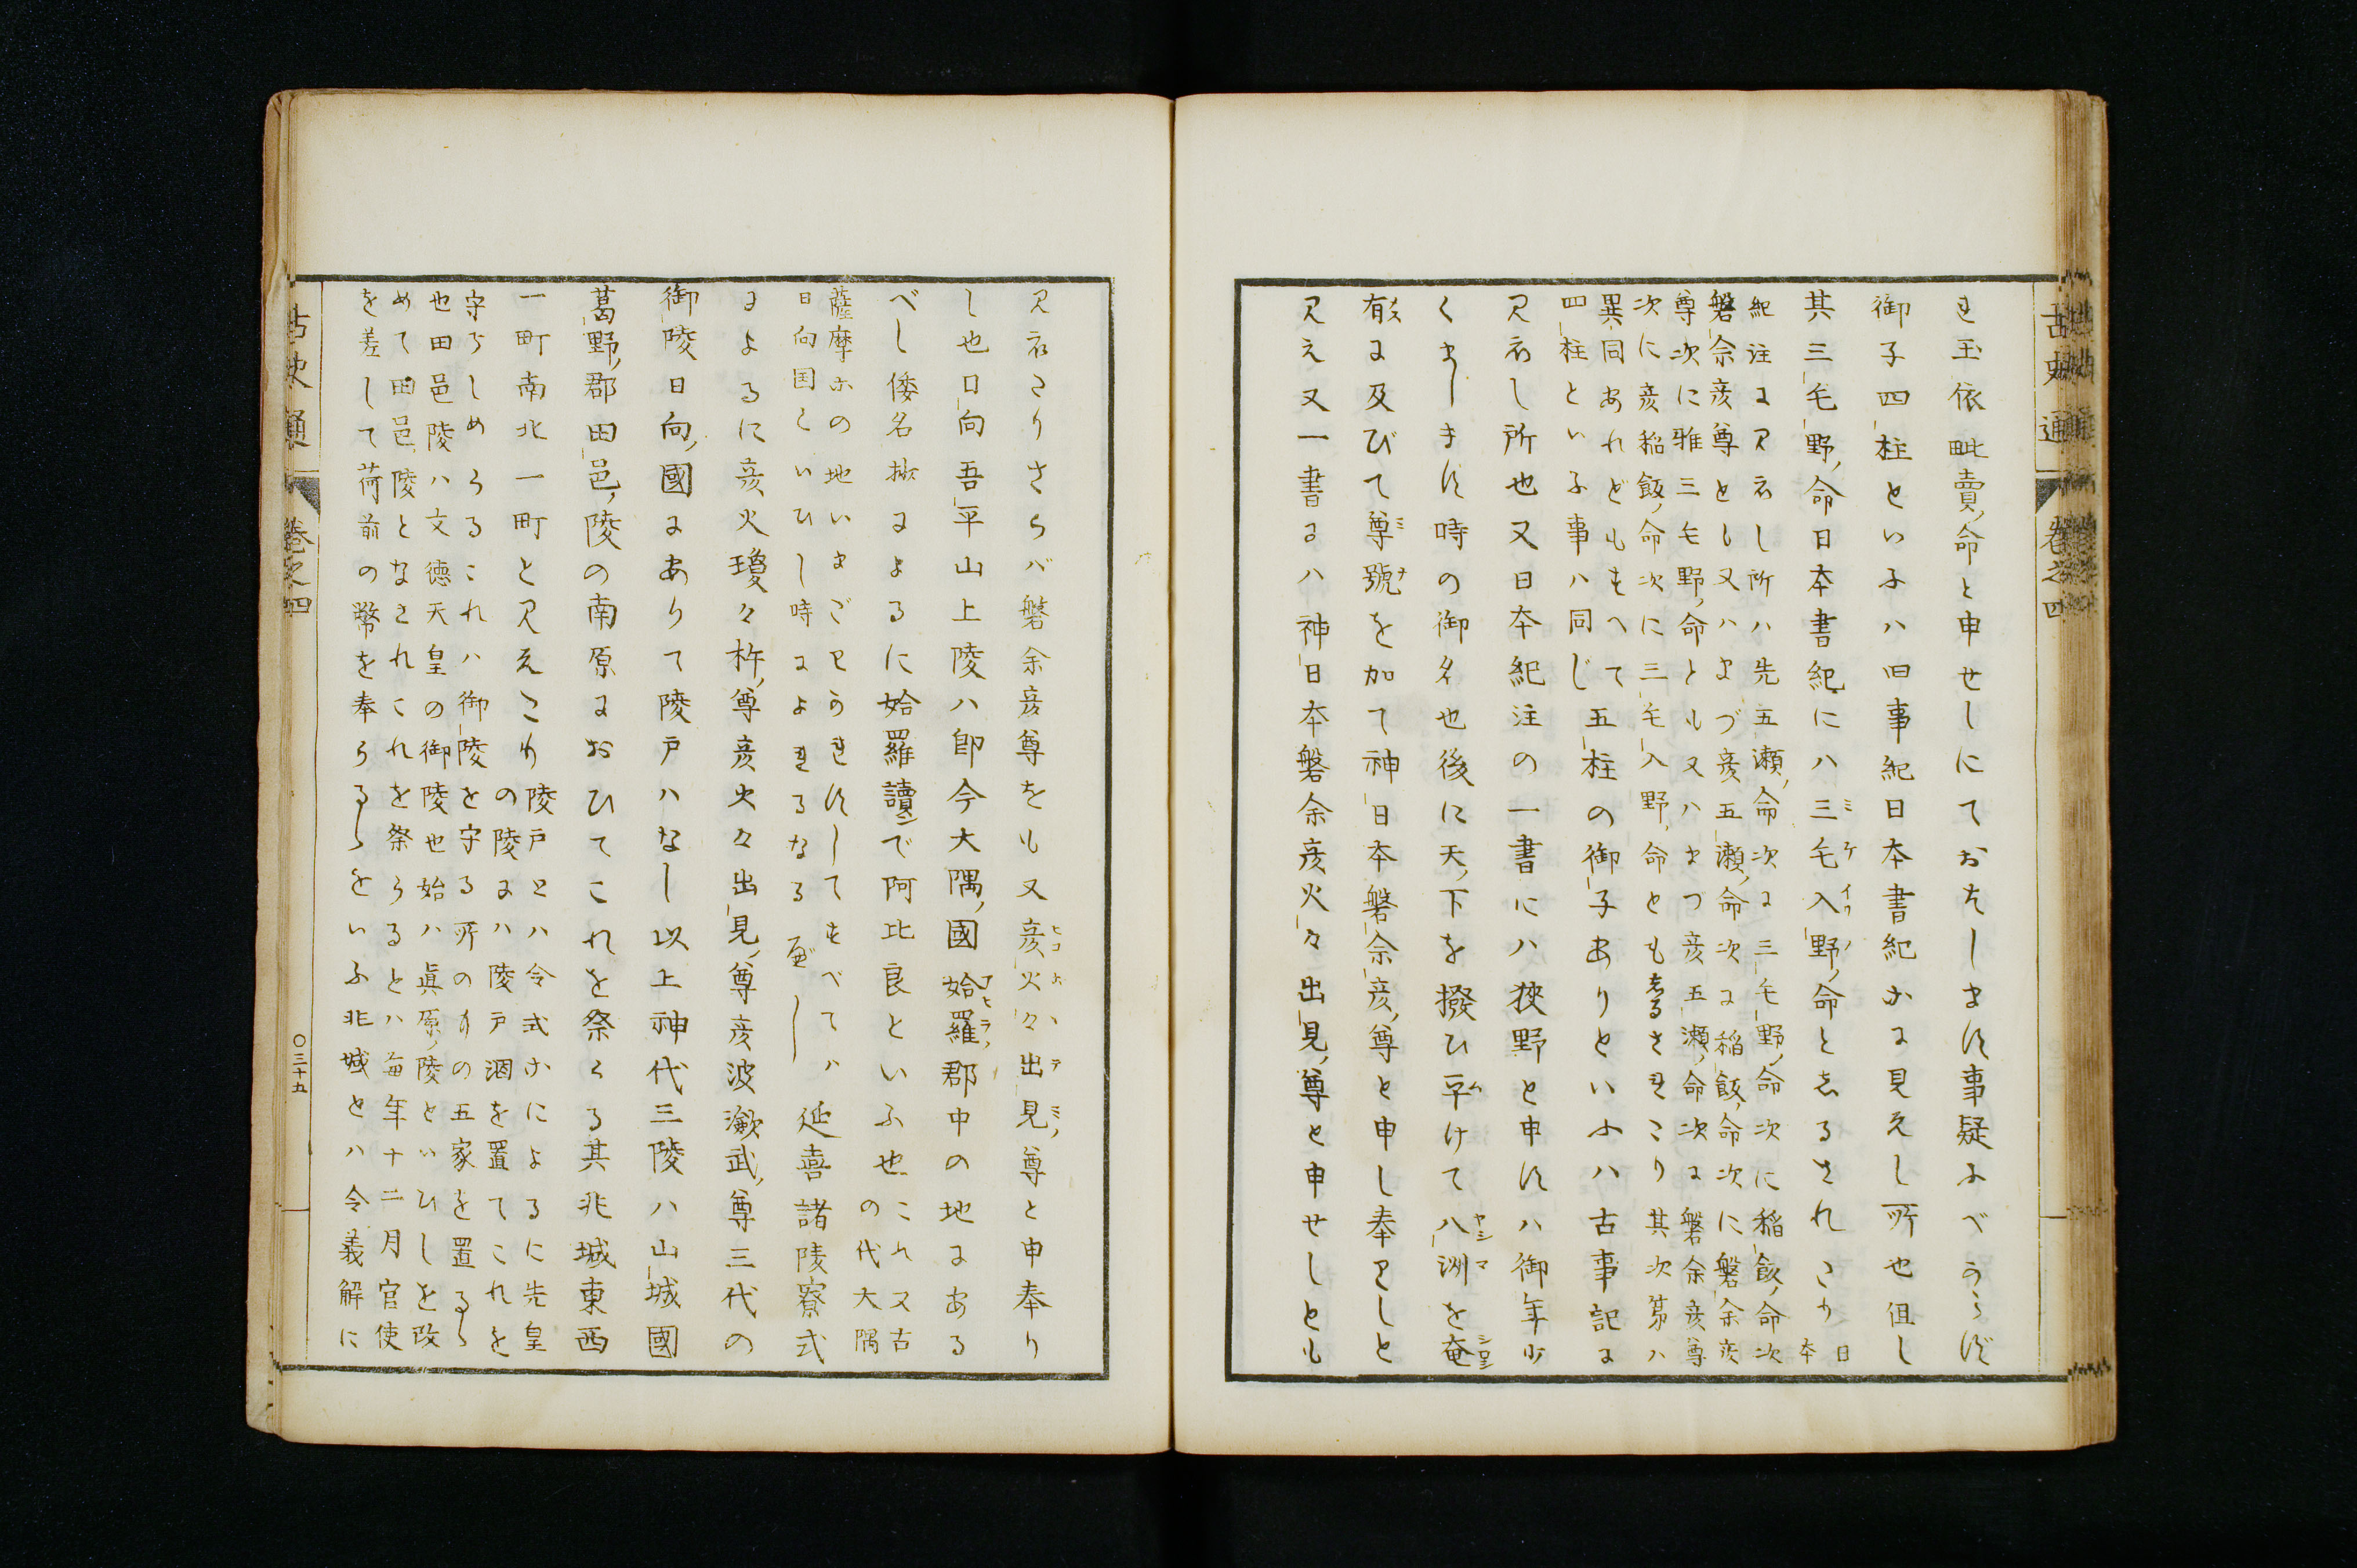 古史通 卷之四
ま玉依毗賣命と申せしにておはしま須事疑ふべからず
御子四柱といふハ旧事紀日本書紀等に見えし所也但し
其三毛野命日本書紀にハ三毛入野命としるされたり日本
紀註に見えし所ハ先五瀬命次に三毛野命次に稲飯命次
磐余彦尊とし又ハまづ彦五瀬命次に稲飯命次に磐余彦
尊次に稚三毛野命とも又ハまつ彦五瀬命次に磐余彦尊
次に彦稲飯命次に三毛入野命ともしるされたり其次第ハ
異同あれどもすべて五柱の御子ありといふハ古事記に
四柱といふ事ハ同じ
見えし所也又日本紀注の一書にハ狹野と申すハ御年少
くましま須時の御名也後に天下を撥ひ平けて八洲を奄
有に及びて尊號を加て神日本磐余彦尊と申し奉りしと
見え又一書にハ神日本磐余彦火々出見尊と申せしとも
見えたりさらバ磐余彦尊をも又彦火々出見尊と申奉り
し也日向吾平山上陵ハ即今大隅國姶羅郡中の地にある
べし倭名抄によるに姶羅讀で阿比良といふ也これ又古の代大隅
薩摩等の地いまだわかれ須してすべてハ
日向国といひし時によれるなるべし
延喜諸陵寮式
によるに彦火瓊々杵尊彦火々出見尊彦波瀲武尊三代の
御陵日向國にありて陵戸ハなし以上神代三陵ハ山城國
葛野郡田邑陵の南原におひてこれを祭る其兆域東西
一町南北一町と見えたり陵戸とハ令式等によるに先皇
の陵にハ陵戸烟を置てこれを
守らしめらるこれハ御陵を守る所のものの五家を置るゝ
也田邑陵ハ文徳天皇の御陵也始ハ眞原陵といひしを改
めて田邑陵となされたれこれを祭らるとハ毎年十二月官使
を差して荷前の幣を奉らるゝをいふ兆域とハ令義解に
古史通 卷之四
〇三十五